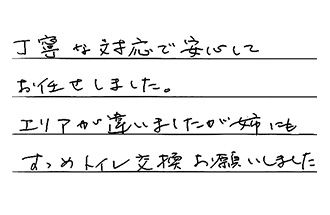 丁寧な対応で安心して
お任せしました。
エリアが違いましたが姉にも
すすめトイレ交換お願いしました